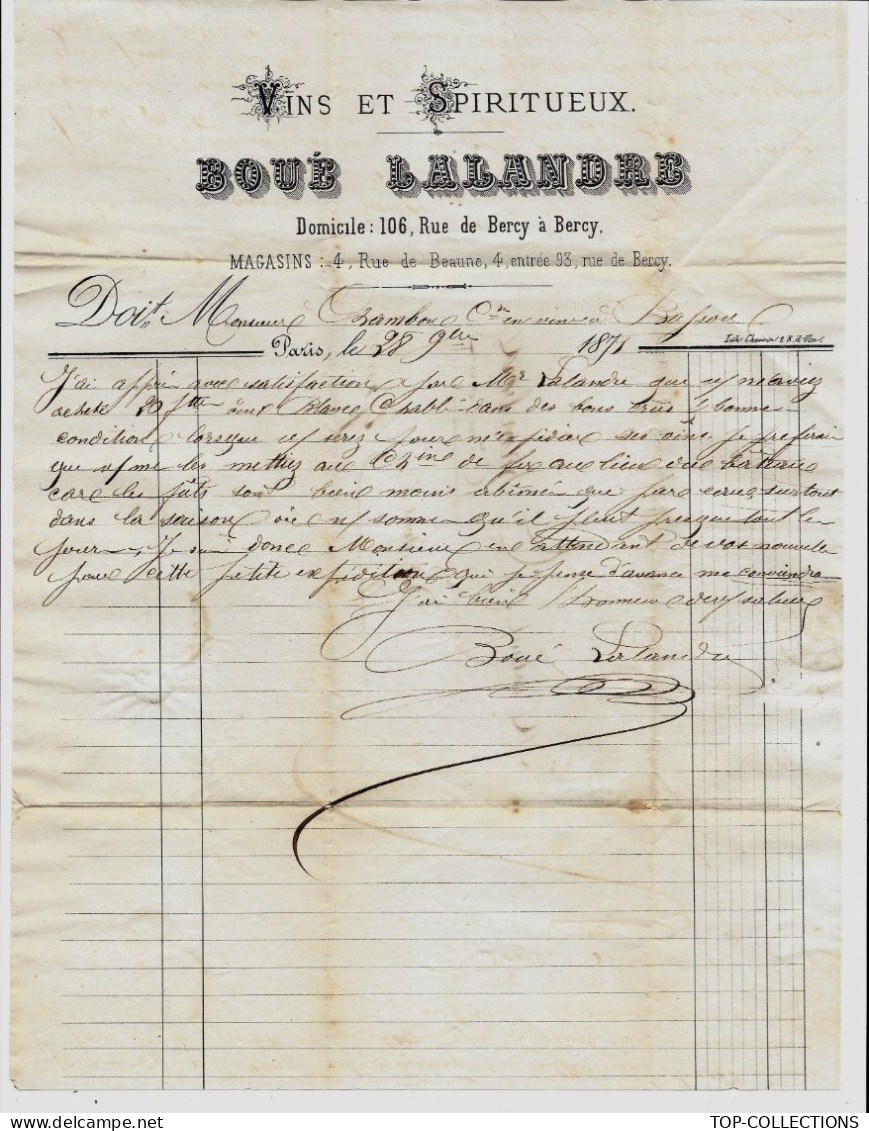 VINS ET SPIRITUEUX.
BOUÉ LALANDRE
Domicile : 106, Rue de Bercy à Bercy.
MAGASINS : 4, Rue de Beaune, 4, entrée 93, rue de Bercy.
Doit Monsieur Chambon Cre en vins à Bassou
Paris, le 28 9bre 1871
J'ai appri avec satisfaction par Mme Lalandre que vs m'aviez
acheté 20 ftte vins blancs Chabli dans des bons prix & bonnes
condition lorsque vs serez pour m'expédier ses vins je preferai
que vs me les mettiez au Ch min de fer au lieu du bateau
car les fûts sont bien moins abimés que par eau surtout
dans la saison où ns sommes qu'il pleut presque tout les
jours, Je suis donc Monsieur en attendant de vos nouvelles
pour cette petite expédition qui je pense d'avance me conviendra
J'ai bien l'honneur de vs saluer
Boué Lalandre
TOP-COLLECTIONS